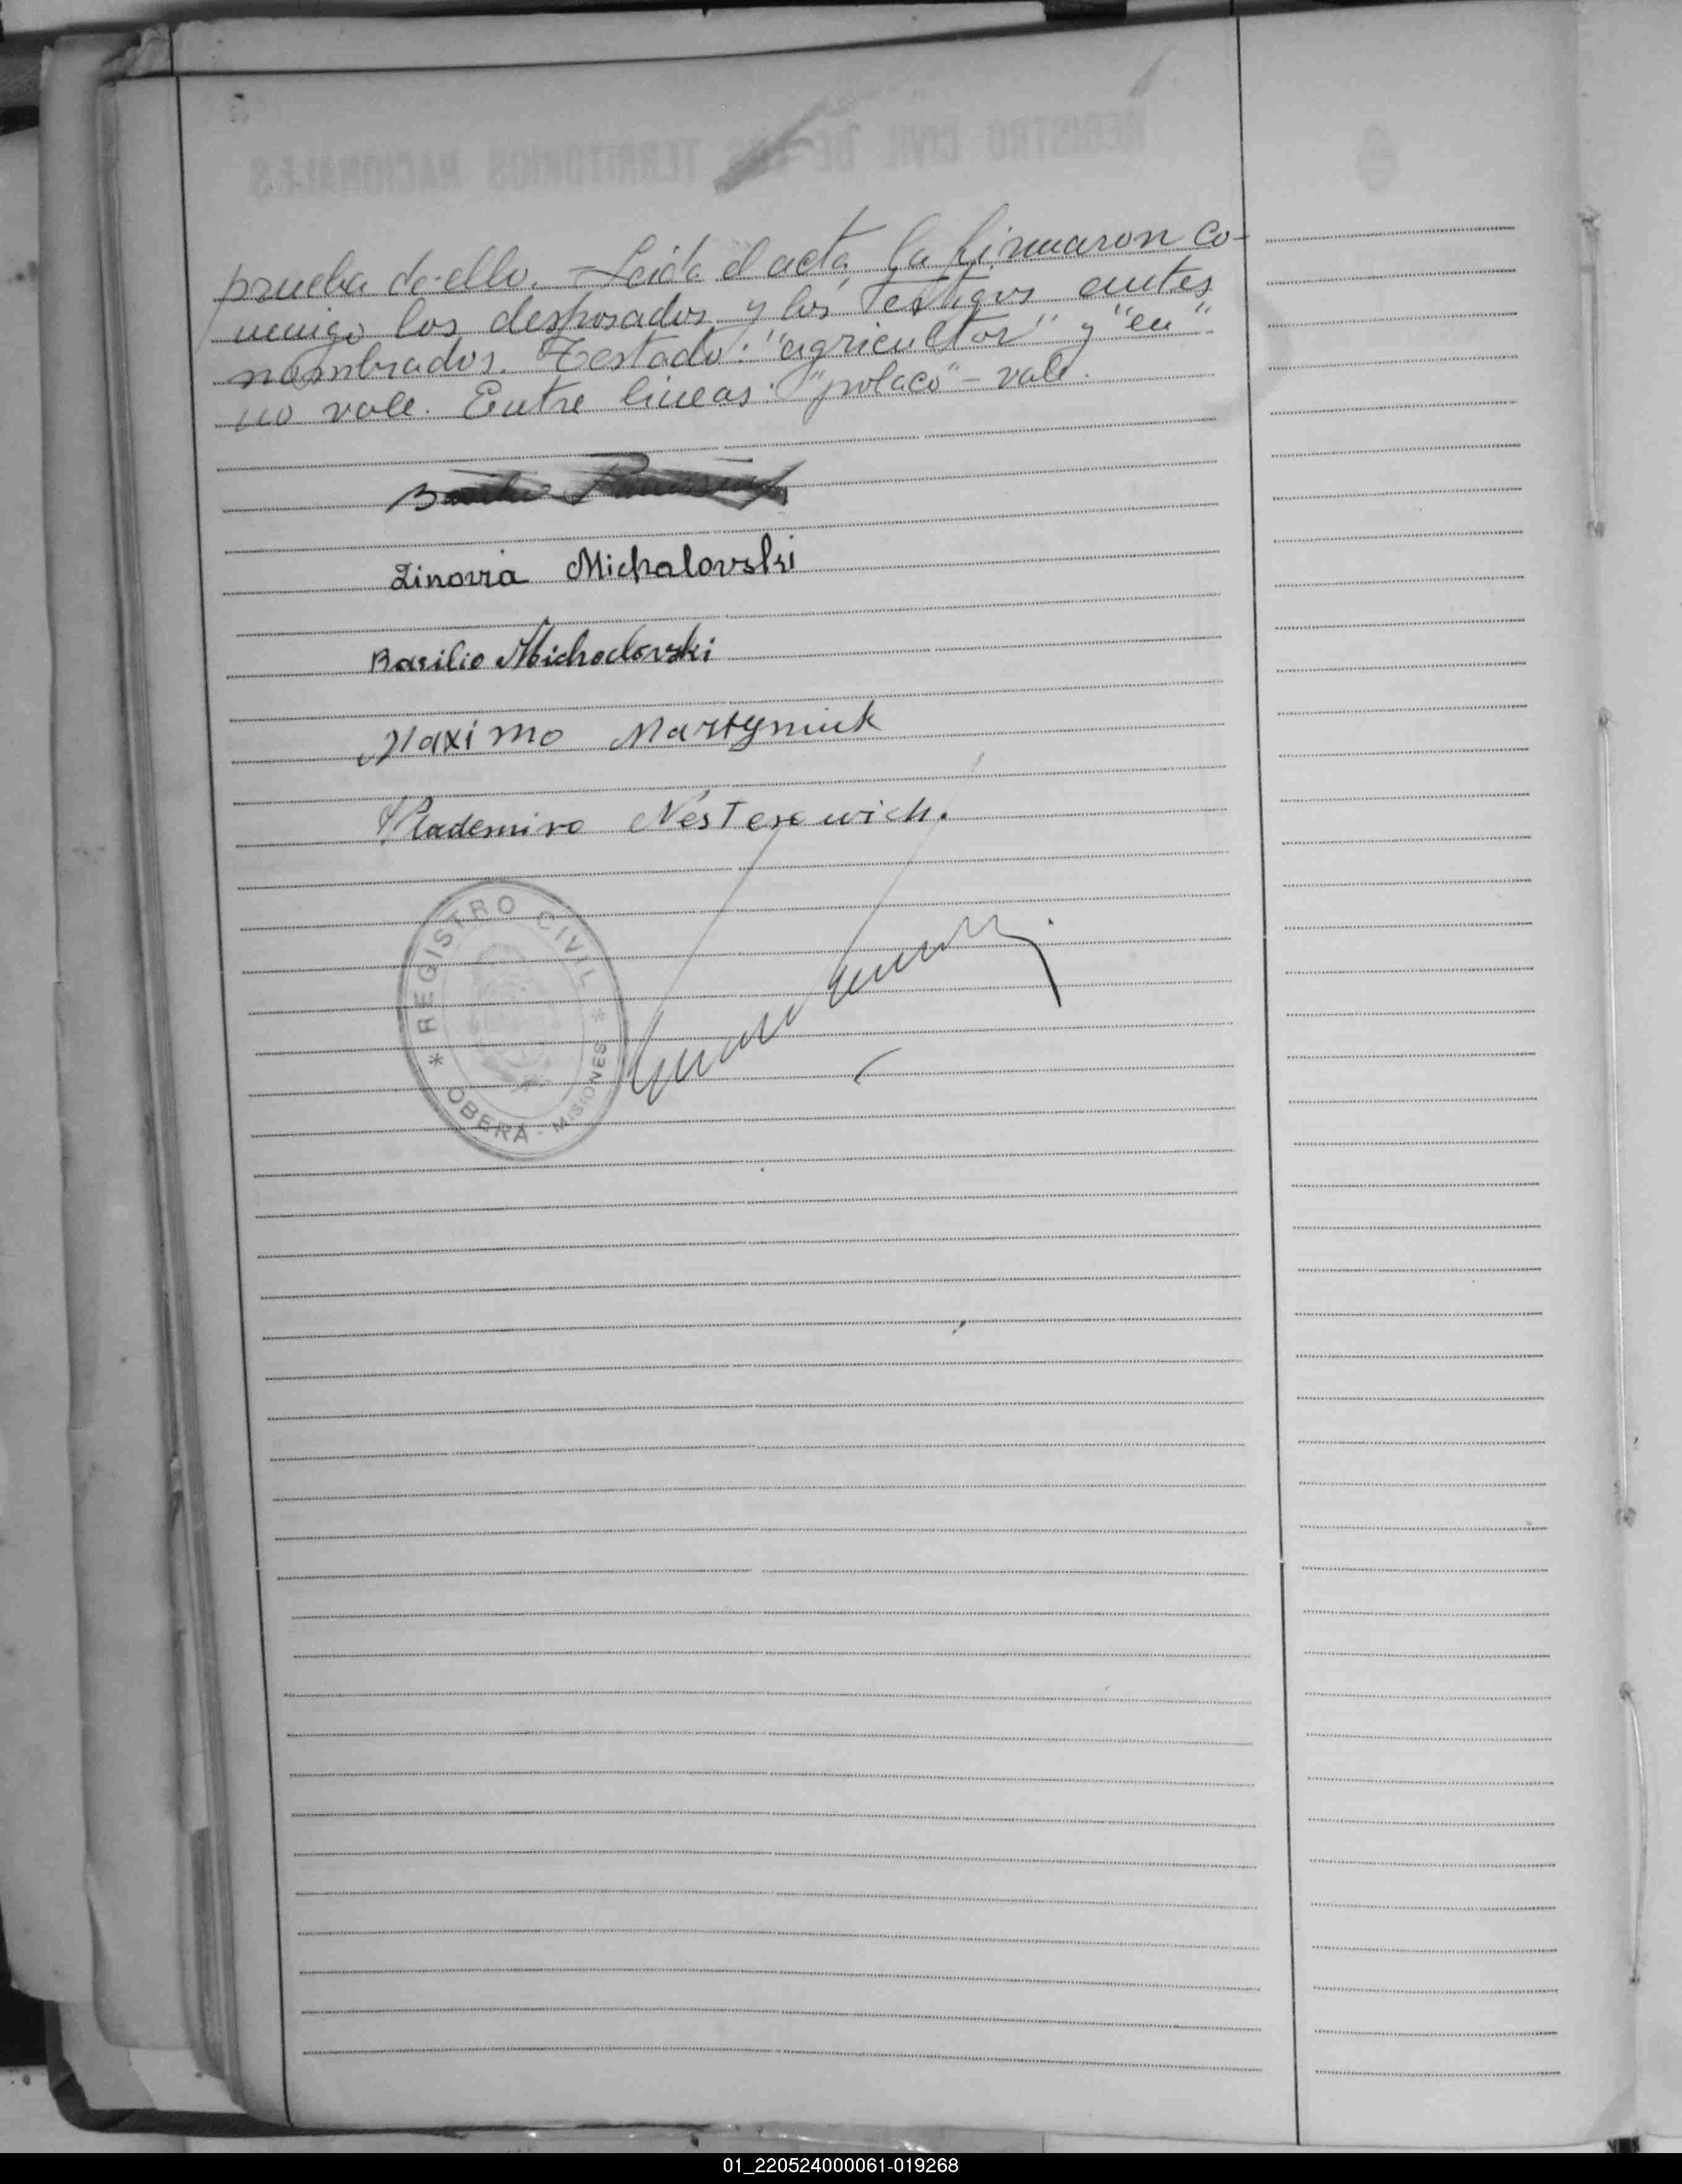 prueba de ello. - Leída el acta, la firmaron co-
migo los desposados y los testigos antes
nombrados. Testado: "agricultor" y "en"
no vale. Entre líneas: "polaco" - vale.
Zinovia Michalovski
Basilio Michalovski
Maximo Martyniuk
Wlademiro Nesterowich.
* REGISTRO CIVIL *
OBERA - MISIONES
01_220524000061-019268